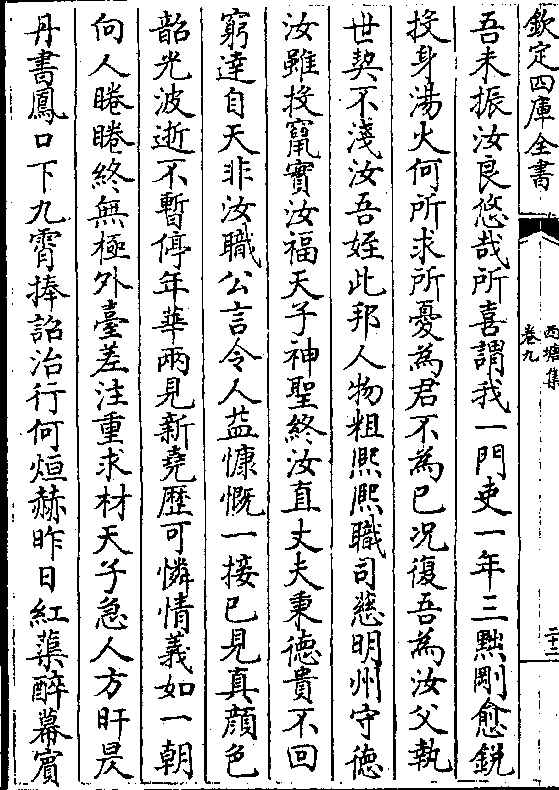 欽定四庫全書
西塘集
卷九
二十二
吾未振汝良悠哉所喜謂我一門吏一年三黜剛愈銳
投身湯火何所求所憂為君不為已況復吾為汝父執
世契不淺汝吾姪此邦人物粗熈熈職司慈明州守德
汝雖投竄實汝福天子神聖終汝直丈夫秉德貴不回
窮達自天非汝職公言令人益慷慨一接已見真顔色
韶光波逝不暫停年華兩見新堯歴可憐情義如一朝
向人睠睠終無極外臺差注重求材天子急人方旰昃
丹書鳳口下九霄捧詔治行何烜赫昨日紅蕖醉幕賓